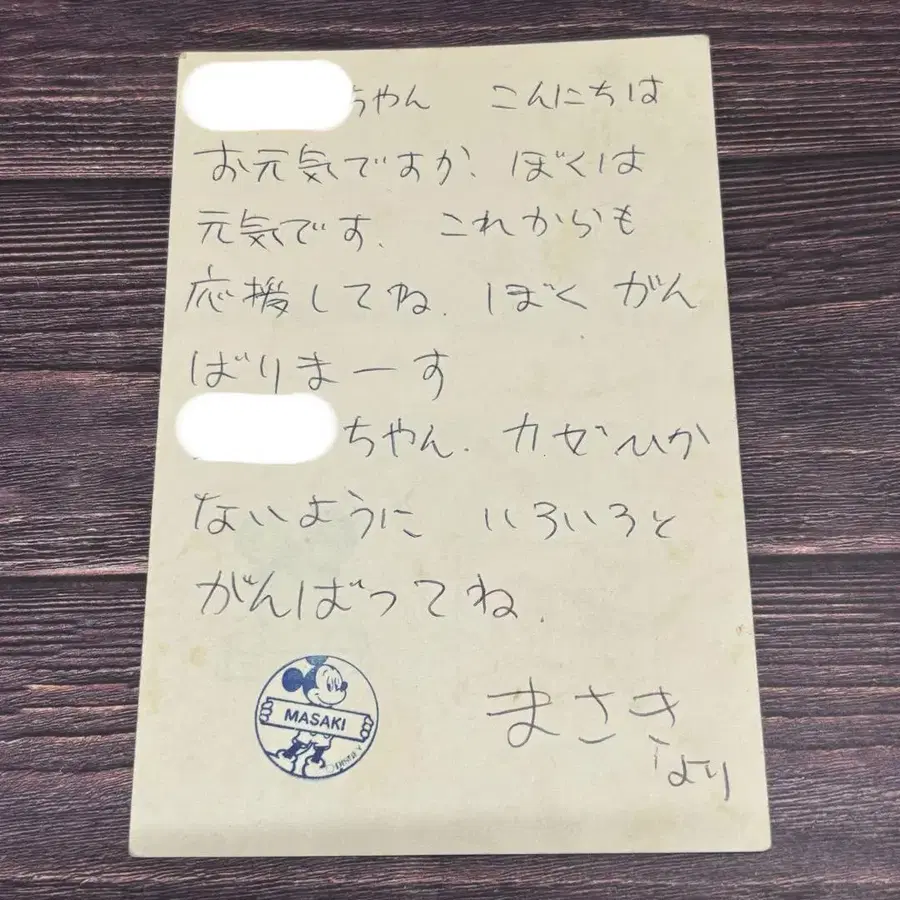 ちゃん こんにちは
お元気ですか、ぼくは
元気です、これからも
応援してね、ぼく がん
ばりまーす
ちゃん、カゼひか
ないように いろいろと
がんばってね、
MASAKI
©DISNEY
まさき
より